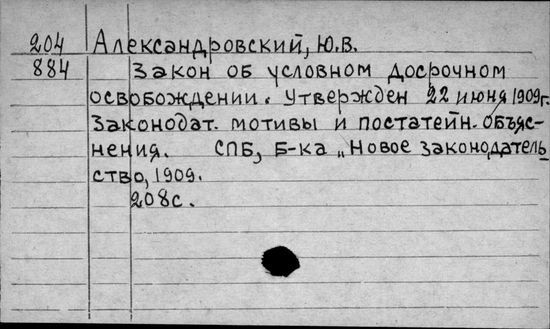 204 Александровский, Ю.В.
884 Закон об условном досрочном
освобождении. Утвержден 22 июня 1909г.
Законодат. мотивы и постатейн. объяс-
нения. СПБ, Б-ка „Новое законодатель
ство, 1909.
208с.